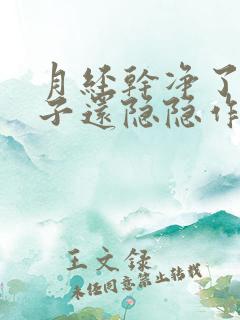 月经幹净了
子還隐隐作
王文録
未经同意禁止转载